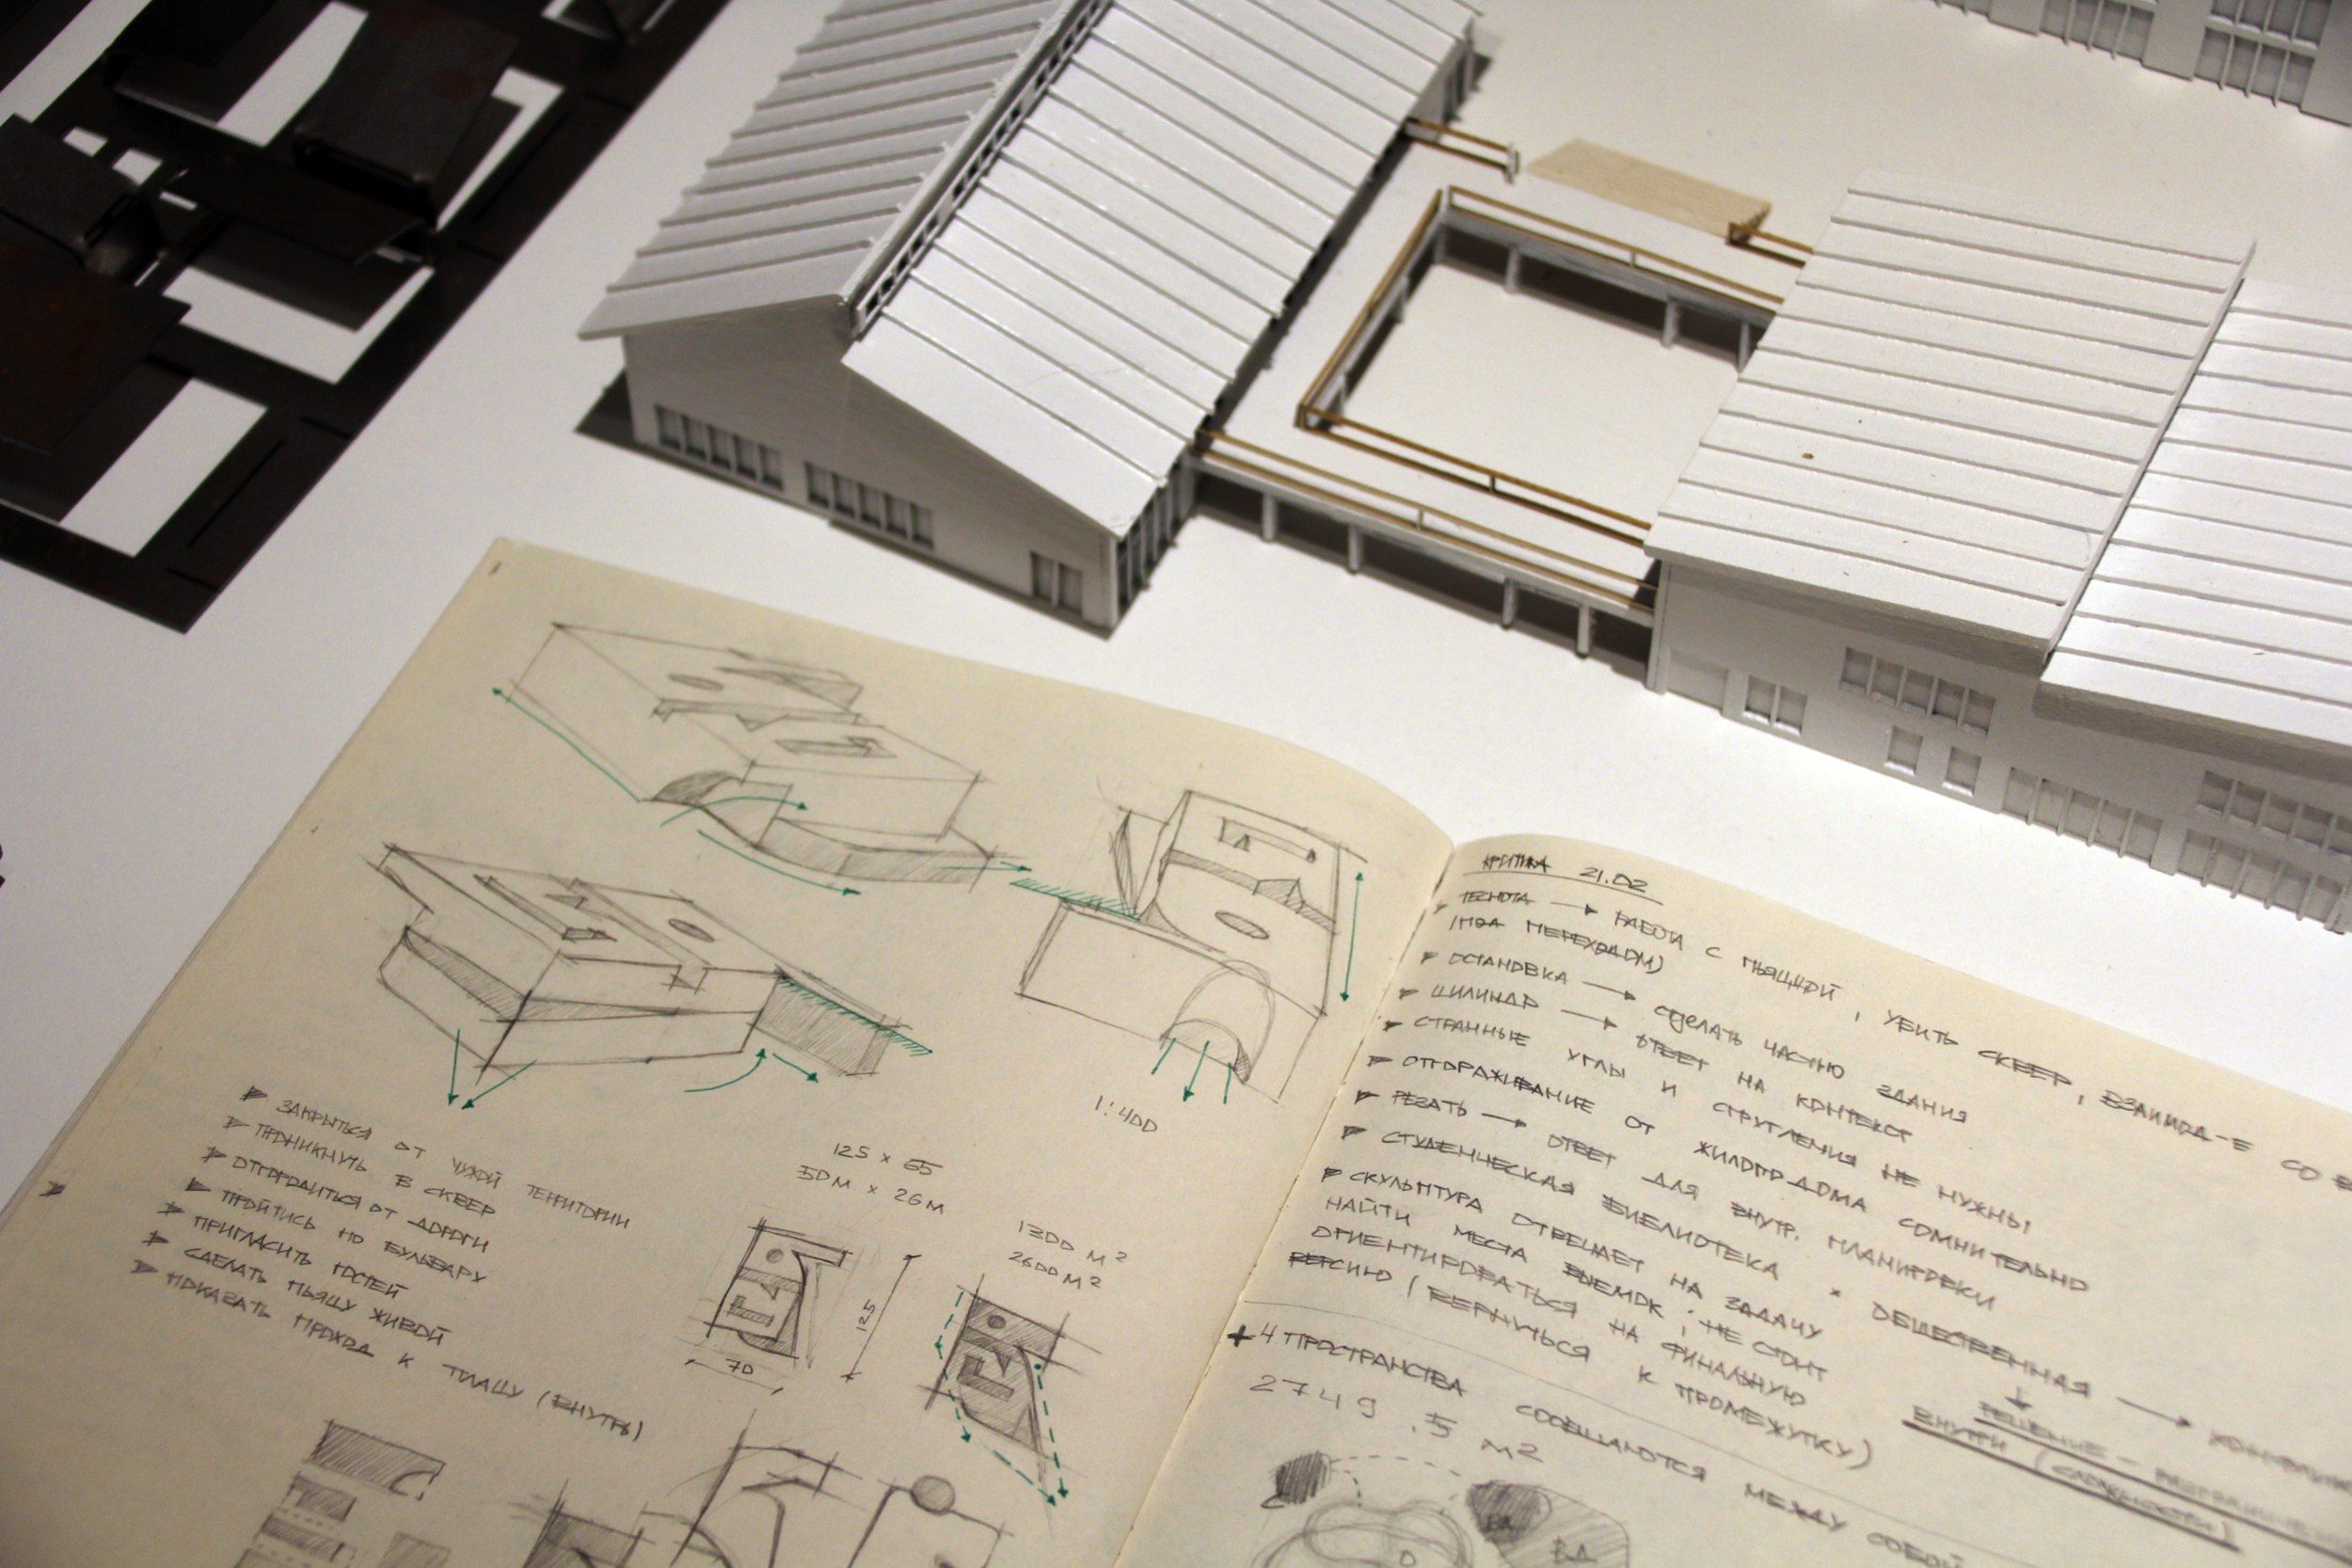 ЗАКРЫТЬСЯ ОТ ЧУЖОЙ ТЕРРИТОРИИ
ПРОНИКНУТЬ В СКВЕР
ОТГОРОДИТЬСЯ ОТ ДОРОГИ
ПРОЙТИСЬ ПО БУЛЬВАРУ
ПРИГЛАСИТЬ ГОСТЕЙ
СДЕЛАТЬ ПЬЯЦУ ЖИВОЙ
ПОКАЗАТЬ ПРОХОД К ПЛАЦУ (ВНУТРЬ)
1:400
125 × 65
50 М × 26 М
1300 М²
2600 М²
125
70
КРИТИКА 21.02
ТЕСНОТА → РАБОТА С ПЬЯЦЦОЙ, УБИТЬ СКВЕР, ВЗАИМОД-Е СО
(ПОД ПЕРЕХОДОМ)
ОСТАНОВКА → СДЕЛАТЬ ЧАСТЬЮ ЗДАНИЯ
ЦИЛИНДР → ОТВЕТ НА КОНТЕКСТ
СТРАННЫЕ УГЛЫ И СКРУГЛЕНИЯ НЕ НУЖНЫ
ОТГОРАЖИВАНИЕ ОТ ЖИЛОГО ДОМА СОМНИТЕЛЬНО
РЕЗАТЬ → ОТВЕТ ДЛЯ ВНУТР. ПЛАНИРОВКИ
СТУДЕНЧЕСКАЯ БИБЛИОТЕКА × ОБЩЕСТВЕННАЯ →
СКУЛЬПТУРА ОТВЕЧАЕТ НА ЗАДАЧУ
НАЙТИ МЕСТА ВЫЕМОК; НЕ СТОИТ
ОРИЕНТИРОВАТЬСЯ НА ФИНАЛЬНУЮ
ВЕРСИЮ (ВЕРНУТЬСЯ К ПРОМЕЖУТКУ)
↓
РЕШЕНИЕ –
ВНУТРИ
+ 4 ПРОСТРАНСТВА СООБЩАЮТСЯ МЕЖДУ СОБОЙ
2749.5 М2